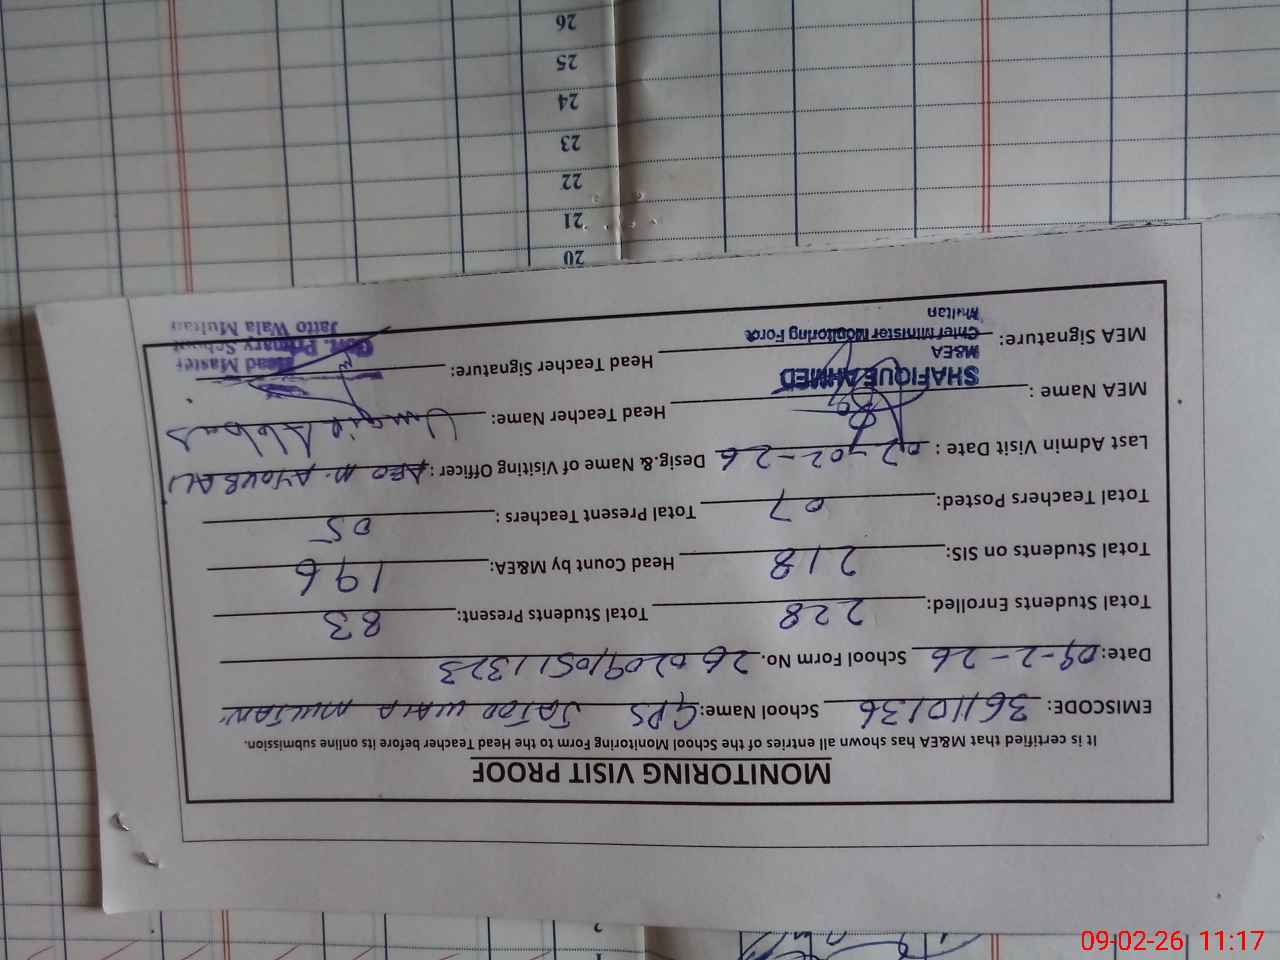 MONITORING VISIT PROOF
It is certified that M&EA has shown all entries of the School Monitoring Form to the Head Teacher before its online submission.
EMISCODE: 36110136 School Name: GPS JATOO WALA MULTAN
Date: 09-2-26 School Form No. 260209051323
Total Students Enrolled: 228 Total Students Present: 83
Total Students on SIS: 218 Head Count by M&EA: 196
Total Teachers Posted: 07 Total Present Teachers : 05
Last Admin Visit Date : 07-02-26 Desig.& Name of Visiting Officer : AEO M. AYOUB ALI
MEA Name : Head Teacher Name: Umair Abbas
SHAFIQUE AHMED
M&EA
Chief Minister Monitoring Force
Multan
MEA Signature: Head Teacher Signature:
Head Master
Govt. Primary School
Jatto Wala Multan
20
21
22
23
24
25
26
1
2
09-02-26 11:17